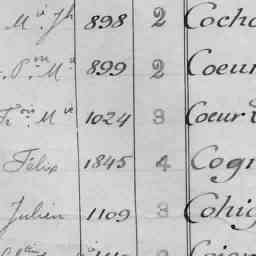 Mie Jh 898 2 Coch
Pre Mie 899 2 Coeur
Frois Mie 1024 3 Coeur
Félix 1845 4 Cogn
Julien 1109 3 Cohi